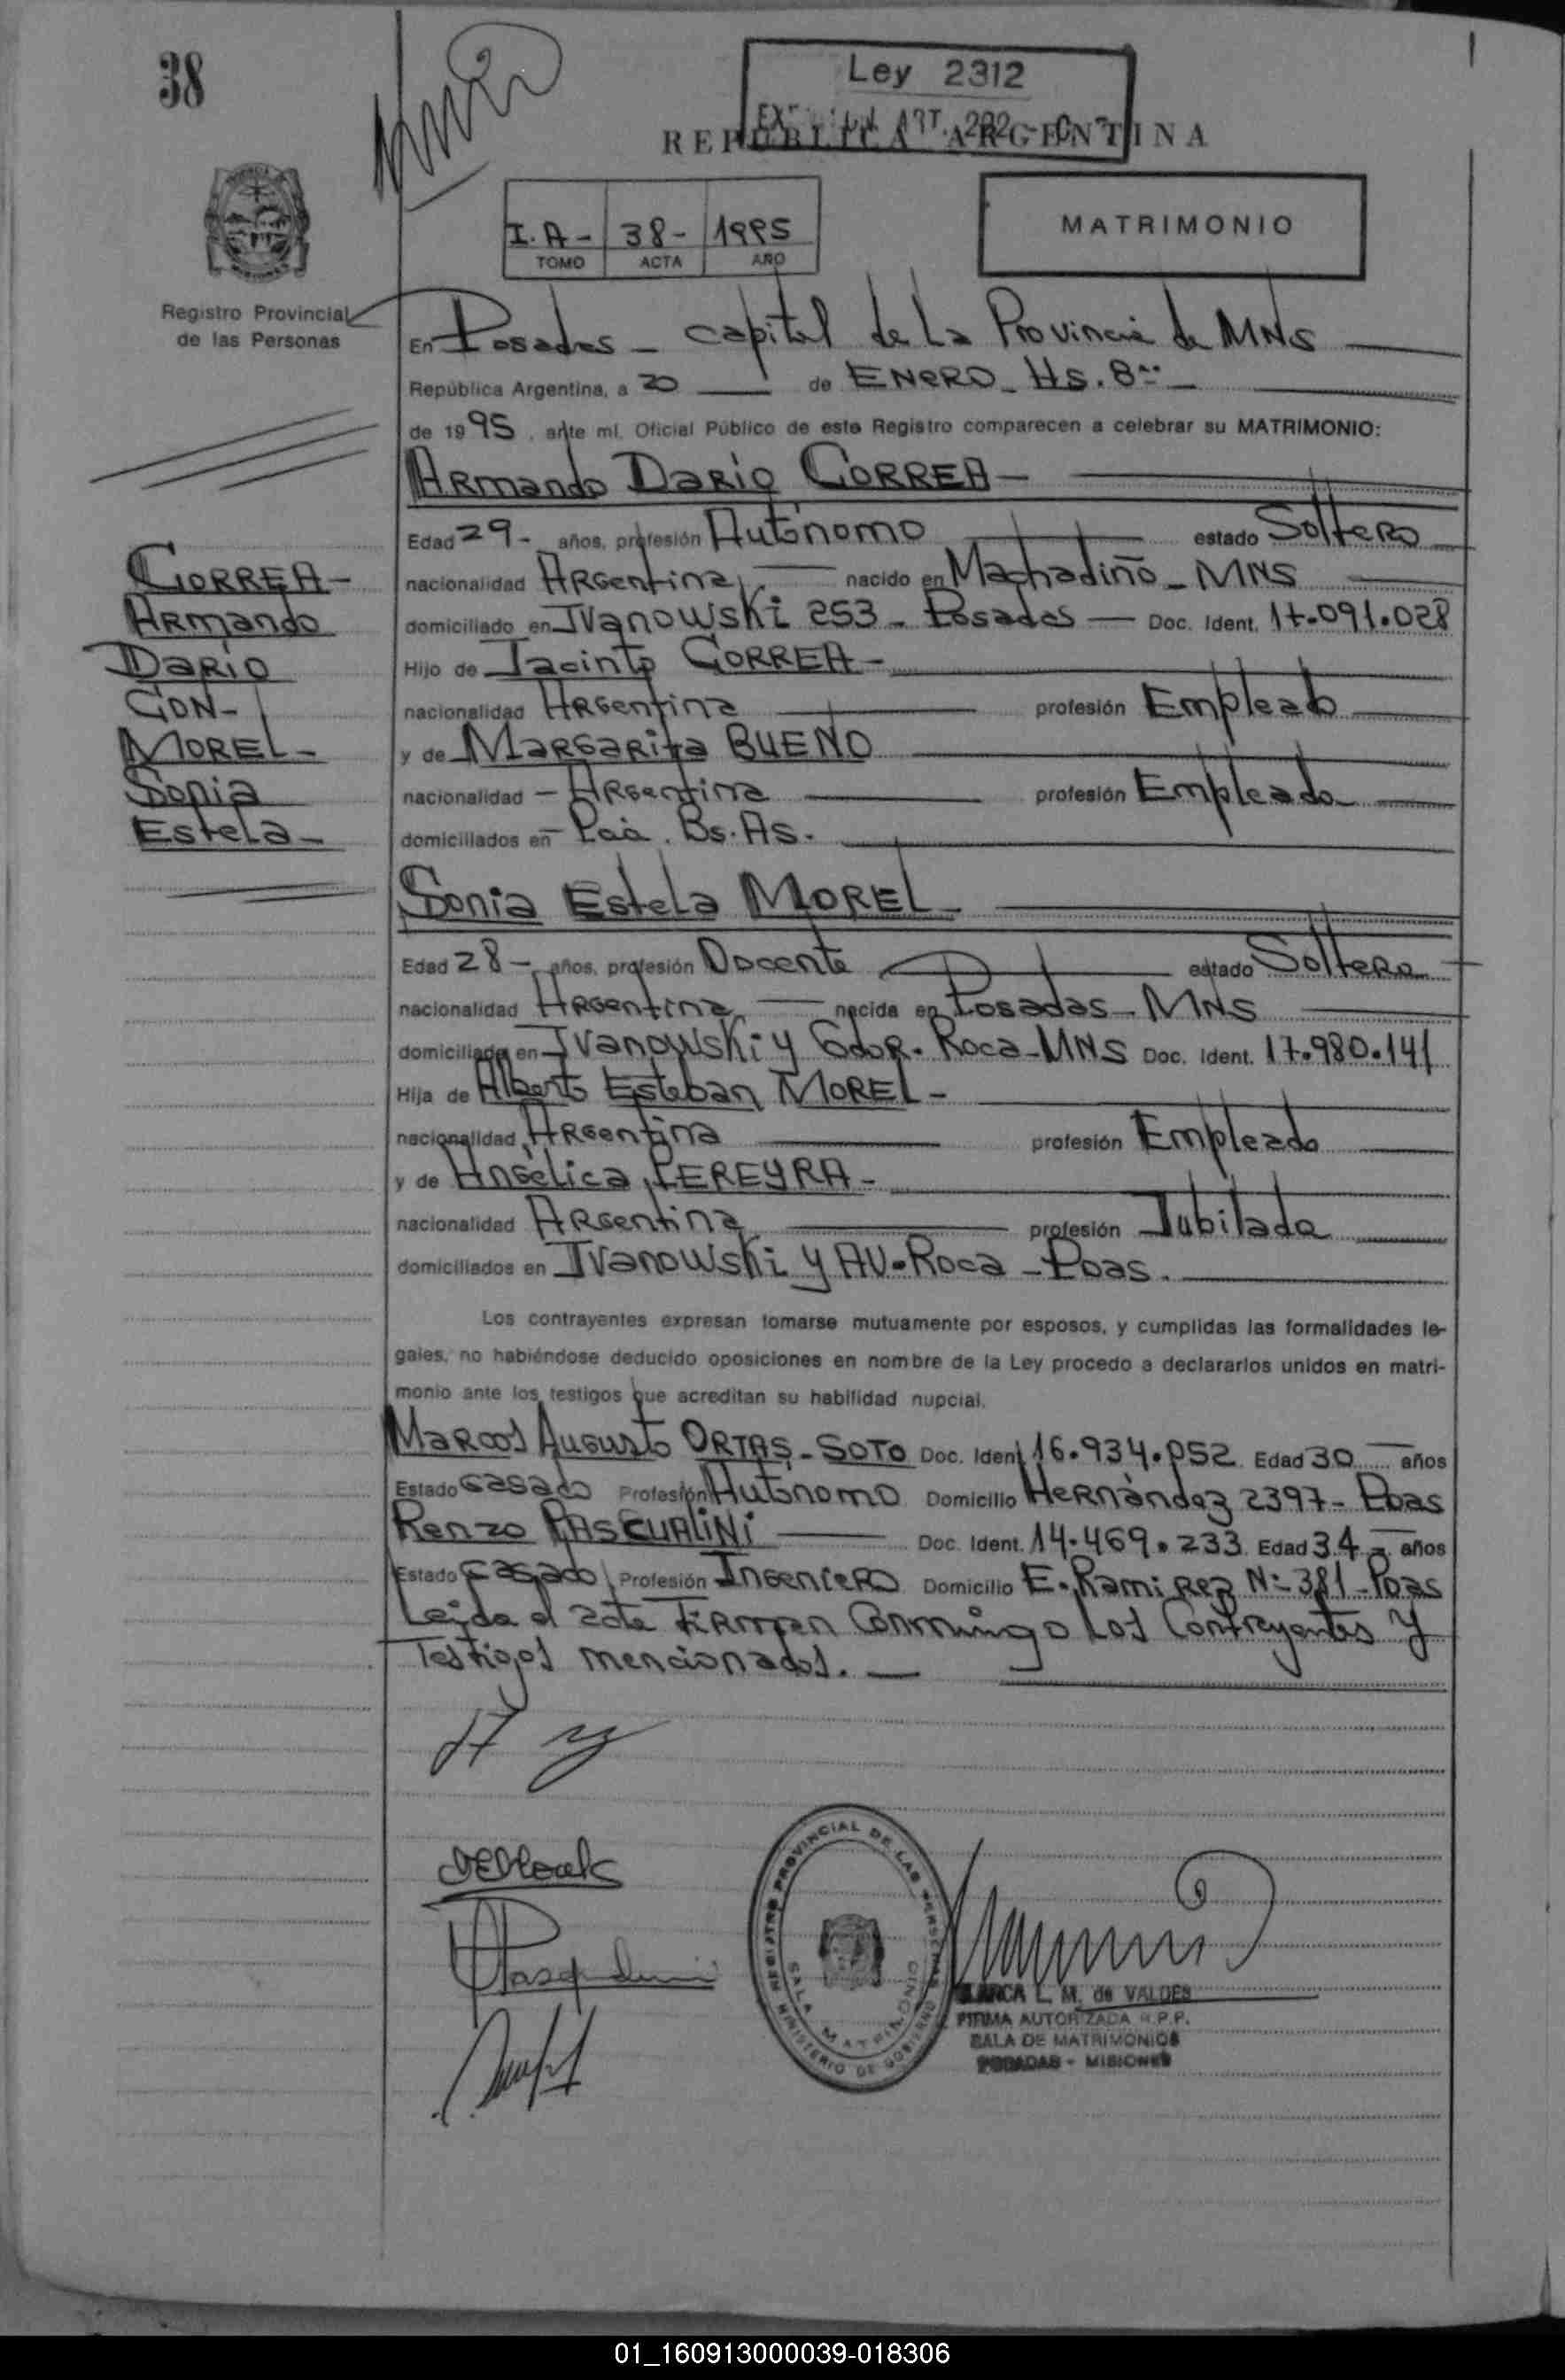 38
Ley 2312
ART. 292
REPUBLICA ARGENTINA
I.A- 38- 1995
TOMO ACTA AÑO
MATRIMONIO
Registro Provincial
de las Personas
En Posadas - capital de La Provincia de MNS
República Argentina, a 20 de ENERO - Hs. 8
de 1995, ante mí, Oficial Público de este Registro comparecen a celebrar su MATRIMONIO:
Armando Dario CORREA -
Edad 29 - años, profesión Autónomo estado Soltero
nacionalidad Argentina, nacido en Machadiño - MNS
domiciliado en Ivanowski 253 - Posadas - Doc. Ident. 17.091.028
Hijo de Jacinto CORREA -
nacionalidad Argentina profesión Empleado
y de Margarita BUENO
nacionalidad - Argentina profesión Empleada
domiciliados en - Pcia. Bs. As.
CORREA -
Armando
Dario
CON -
MOREL -
Sonia
Estela -
Sonia Estela MOREL -
Edad 28 - años, profesión Docente estado Soltera
nacionalidad Argentina nacida en Posadas - MNS
domiciliada en Ivanowski y Gdor. Roca - MNS Doc. Ident. 17.980.141
Hija de Alberto Esteban MOREL -
nacionalidad Argentina profesión Empleado
y de Angélica PEREYRA -
nacionalidad Argentina profesión Jubilada
domiciliados en Ivanowski y AV. Roca - Pdas.
Los contrayentes expresan tomarse mutuamente por esposos, y cumplidas las formalidades le-
gales, no habiéndose deducido oposiciones en nombre de la Ley procedo a declararlos unidos en matri-
monio ante los testigos que acreditan su habilidad nupcial.
Marcos Augusto ORTAS - SOTO Doc. Ident. 16.934.052 Edad 30 años
Estado Casado Profesión Autónomo Domicilio Hernández 2397 - Pdas
Renzo PASCUALINI Doc. Ident. 14.469.233 Edad 34 - años
Estado Casado Profesión Ingeniero Domicilio E. Ramirez Nº 381 - Pdas
Leida el acta Firman Conmigo Los Contrayentes y
Testigos mencionados.
REGISTRO PROVINCIAL DE LAS PERSONAS
SALA MATRIMONIO
MINISTERIO DE GOBIERNO
BLANCA L. M. de VALDES
FIRMA AUTORIZADA R.P.P.
SALA DE MATRIMONIOS
POSADAS - MISIONES
01_160913000039-018306